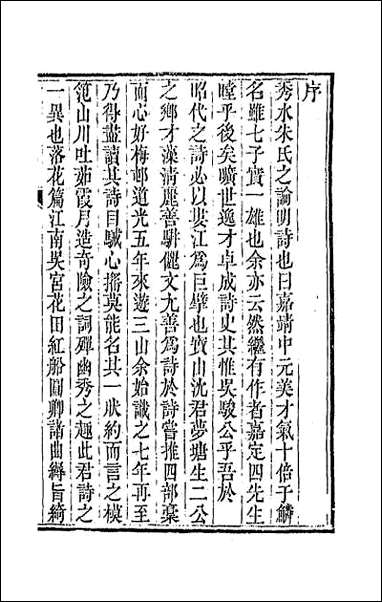 序
秀水朱氏之論明詩也曰嘉靖中元美才氣十倍于鱗
名雖七子實一雄也余亦云然繼有作者嘉定四先生
瞠乎後矣曠世逸才卓成詩史其惟吳駿公乎吾於
昭代之詩必以婁江爲巨擘也寶山沈君夢塘生二公
之鄉才藻淸麗善駢儷文尤善爲詩於詩嘗推四部稾
而心好梅邨道光五年來遊三山余始識之七年再至
乃得盡讀其詩目駴心搖莫能名其一狀約而言之模
範山川吐茹霞月造奇險之詞殫幽秀之趣此君詩之
一異也落花篇江南吳宮花田紅船圓卿諸曲縟旨綺